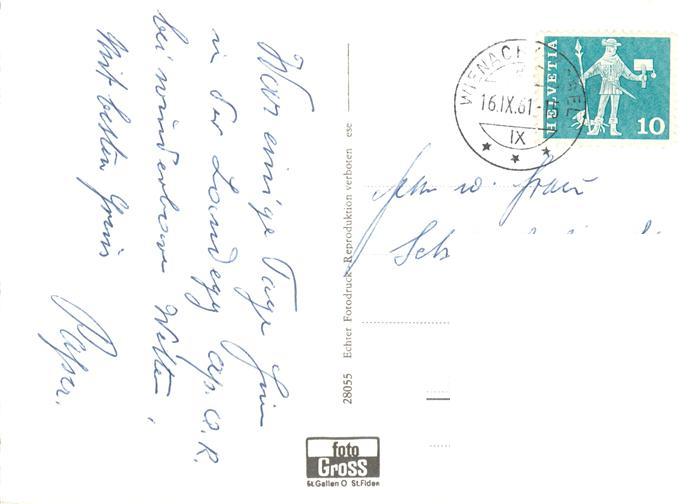 War einige Tage hier
in der Landegg Ap. A. R.
bei wunderbarem Wetter.
Mit besten Gruss
28055 Echter Fotodruck - Reproduktion verboten ese
WIENACHT
16.IX.61
IX
HELVETIA
10
Herrn u. Frau
foto
Gross
St.Gallen O St.Fiden